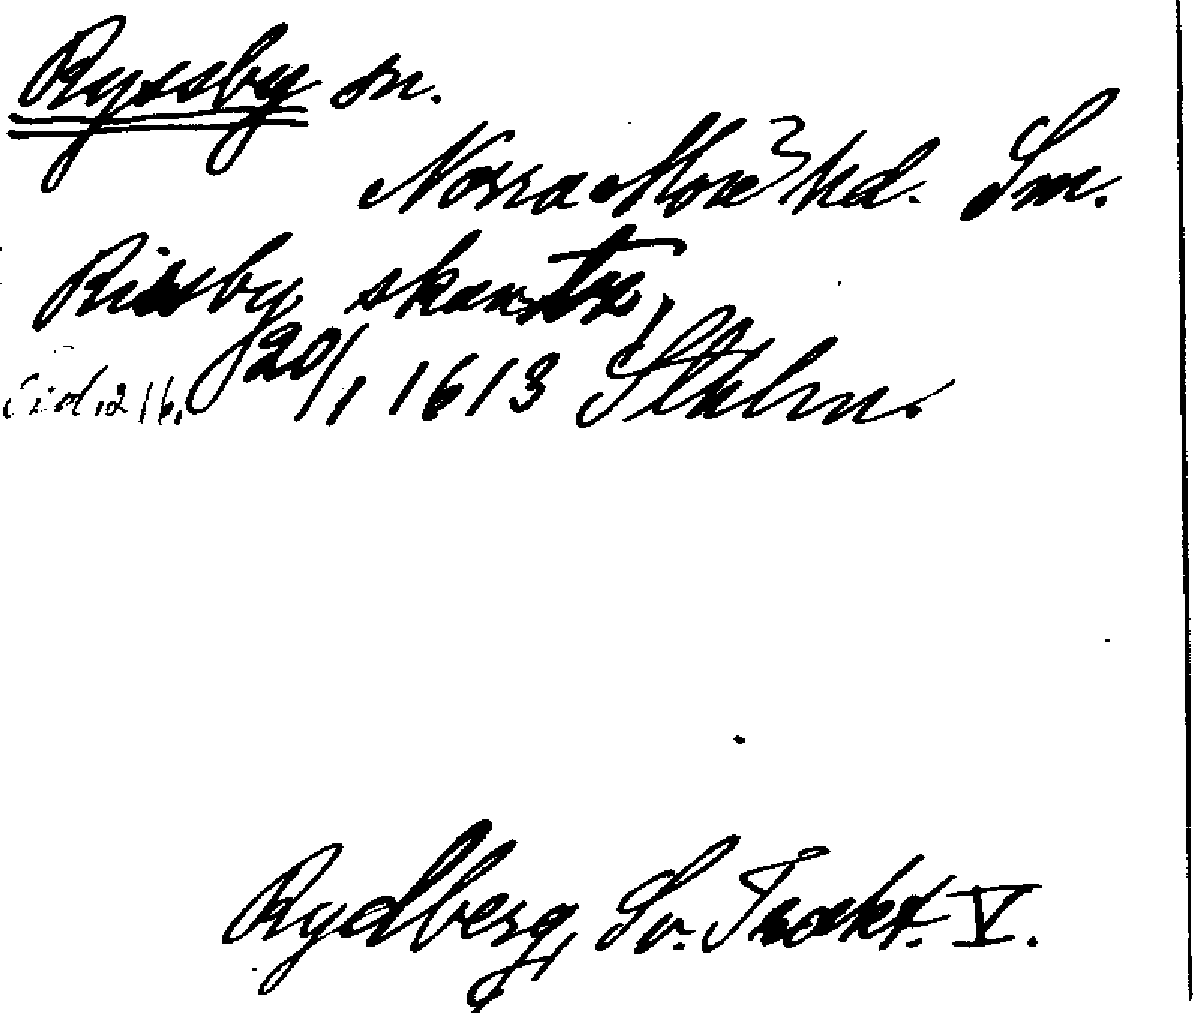 Ryssby sn.
Norra Möre hd. Sm.
Rissby skantze,
Sid. 216. 20/1 1613 Sthlm.
Rydberg, Sv. Trakt. V.